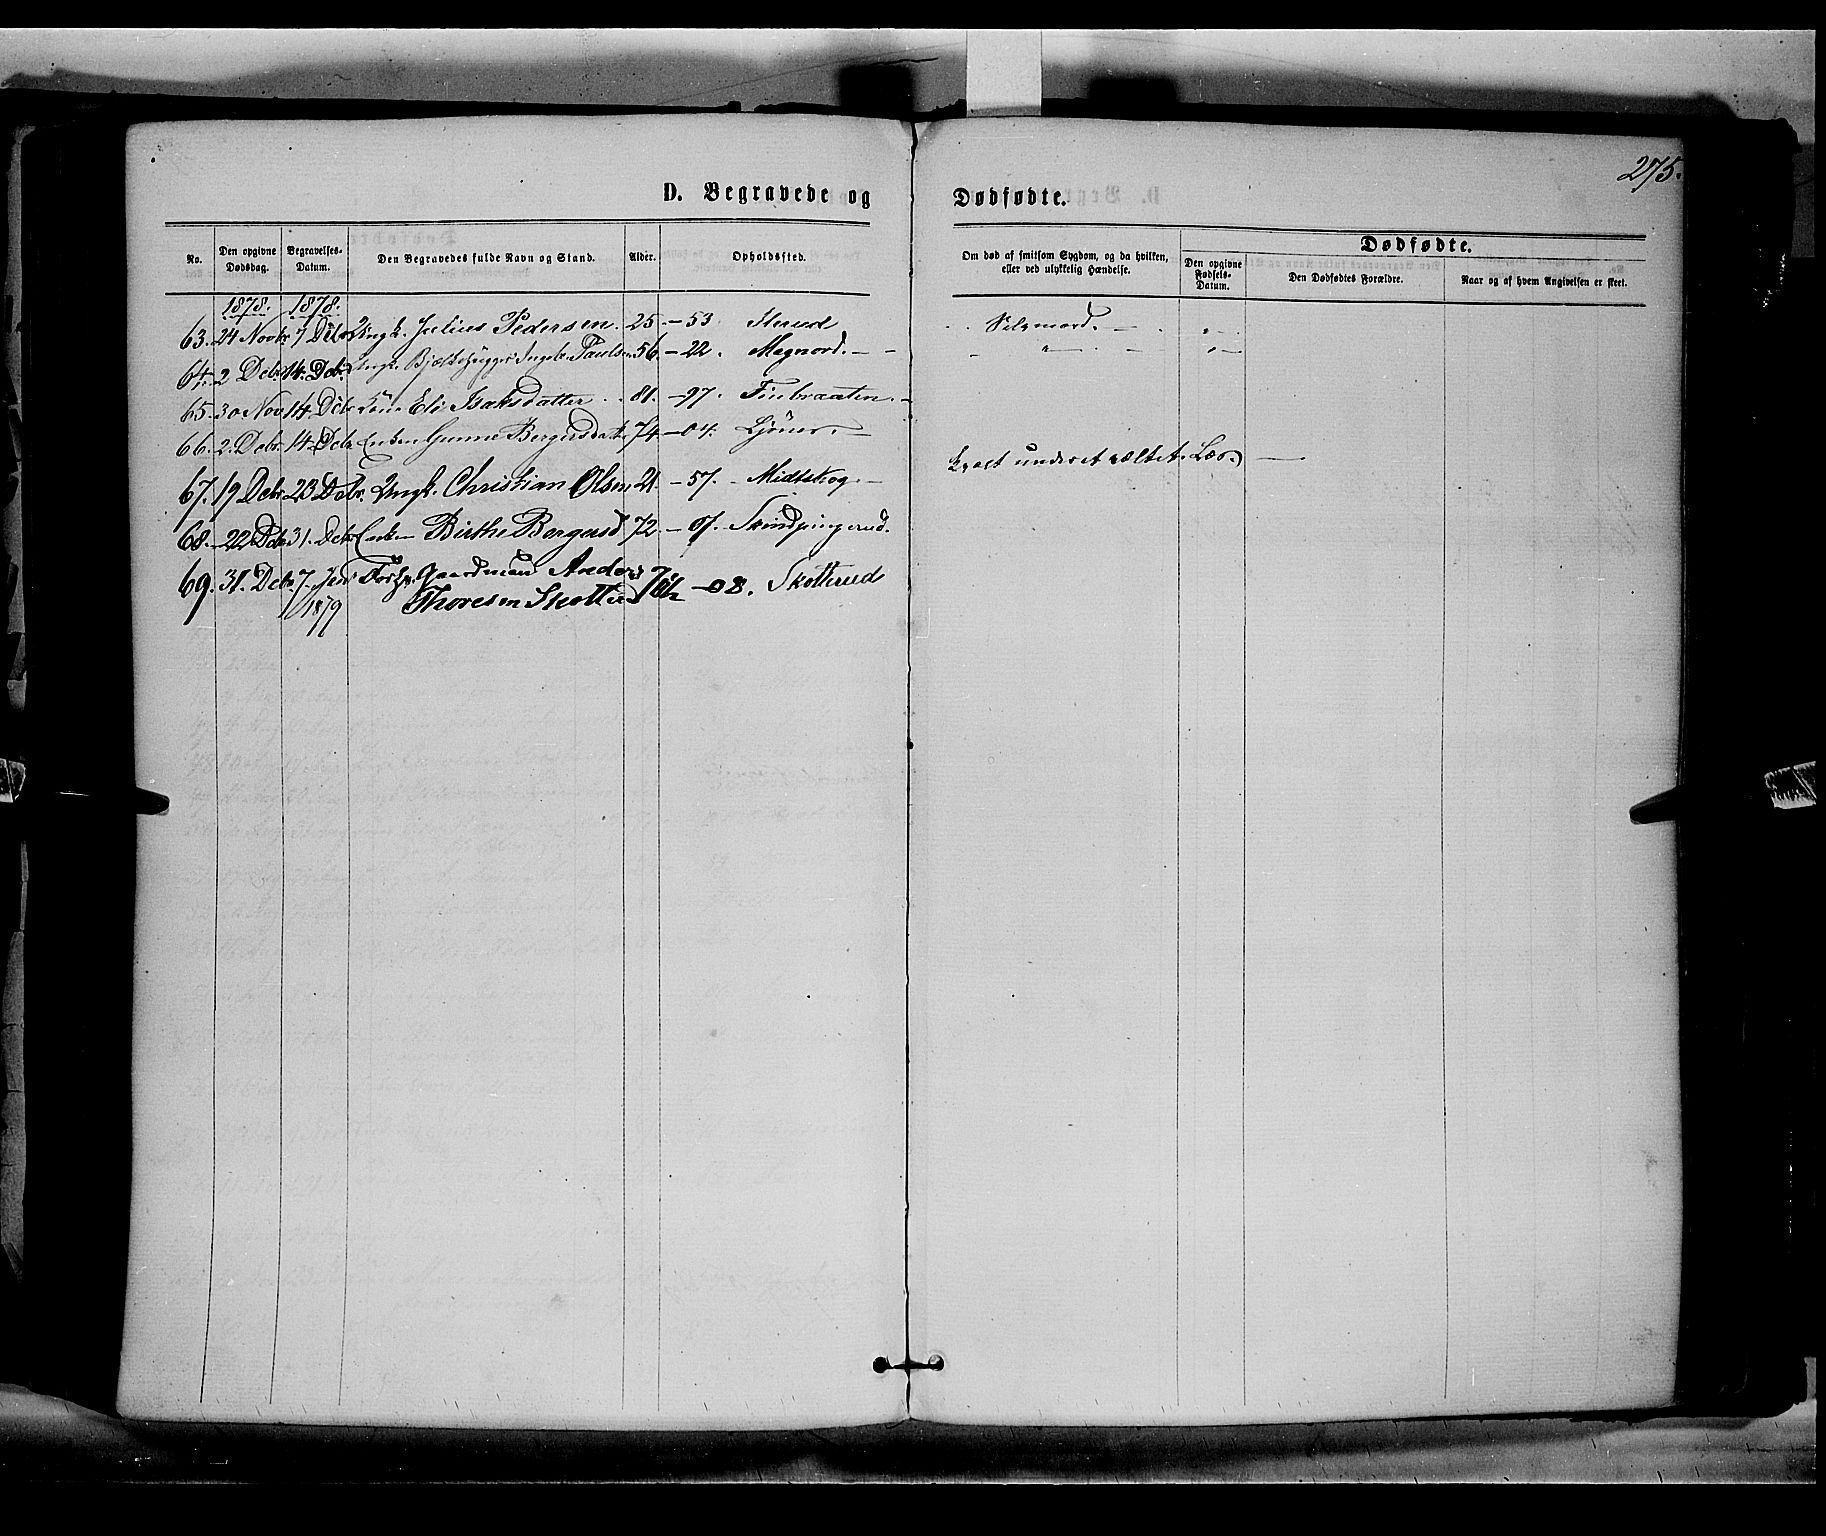 275.
D. Begravede og Dødfødte.
No. Den opgivne Dødsdag. Begravelses-Datum. Den Begravedes fulde Navn og Stand. Alder. Opholdssted. Om død af smitsom Sygdom, og da hvilken, eller ved ulykkelig Hændelse. Dødfødte. Den opgivne Fødsels-Datum. Den Dødfødtes Forældre. Naar og af hvem Angivelsen er skeet.
1878. 1878.
63. 24 Novbr 7 Decbr Ungk. Julius Pedersen. 25. – 53. Sterud Selvmord. – " –
64. 2 Debr. 14. Debr. Ungk. Ingebr. Paulsen 56. – 22. Magnord. – – – " – – " –
65. 30 Nov 14 Decbr Kone Eli Isaksdatter. 81. – 97. Finbraaten. –
66. 2. Debr. 14 Debr Enken Gunne Bergersdatt. 74. – 04. Ljöner. –
67. 19 Debr 23 Debr. Ungk. Christian Olsen 21 – 57. – Midtskog. – Kvalt under et væltet Læs. –
68. 22 Debr 31. Debr Enken Birthe Bergersd 72. – 07.
69. 31. Debr 7. Jan 1879 Gaardmand Anders Thoresen Skotterud – 08. Skotterud